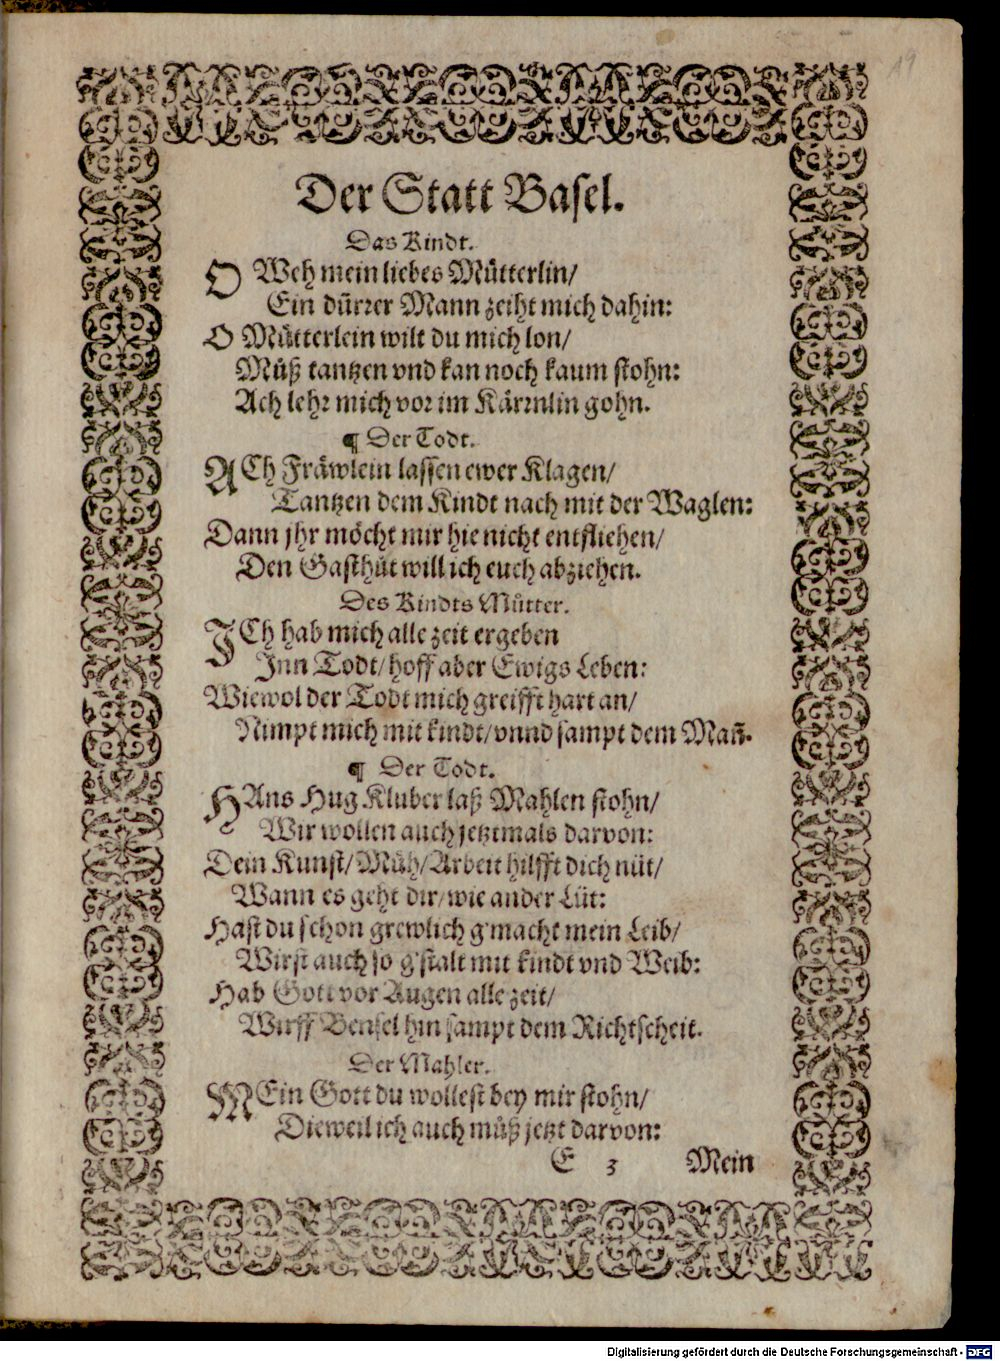 19
Der Statt Basel.
Das Kindt.
O Weh mein liebes Mütterlin/
Ein dürrer Mann zeiht mich dahin:
O Mütterlein wilt du mich lon/
Müß tantzen vnd kan noch kaum stohn:
Ach lehr mich vor im Kärrnlin gohn.
¶ Der Todt.
ACh Fräwlein lassen ewer Klagen/
Tantzen dem Kindt nach mit der Waglen:
Dann jhr möcht mir hie nicht entfliehen/
Den Gasthüt will ich euch abziehen.
Des Kindts Mütter.
ICh hab mich alle zeit ergeben
Inn Todt/ hoff aber Ewigs Leben:
Wiewol der Todt mich greifft hart an/
Nimpt mich mit kindt/ vnnd sampt dem Mañ.
¶ Der Todt.
HAns Hug Kluber laß Mahlen stohn/
Wir wollen auch jetztmals darvon:
Dein Kunst/ Müh/ Arbeit hilfft dich nüt/
Wann es geht dir/ wie ander Lüt:
Hast du schon grewlich g'macht mein Leib/
Wirst auch so g'stalt mit kindt vnd Weib:
Hab Gott vor Augen alle zeit/
Wirff Bensel hin sampt dem Richtscheit.
Der Mahler.
MEin Gott du wollest bey mir stohn/
Dieweil ich auch müß jetzt darvon:
E 3 Mein
Digitalisierung gefördert durch die Deutsche Forschungsgemeinschaft - DFG